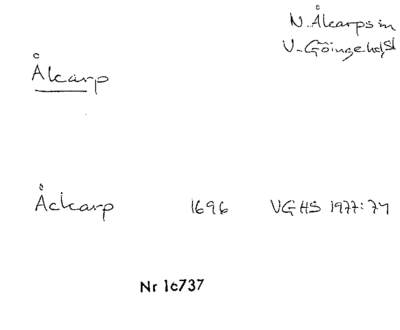 N. Åkarps sn
V. Göinge hd, Sk
Åkarp
Åckarp 1696 VGHS 1977:74
Nr 1c737